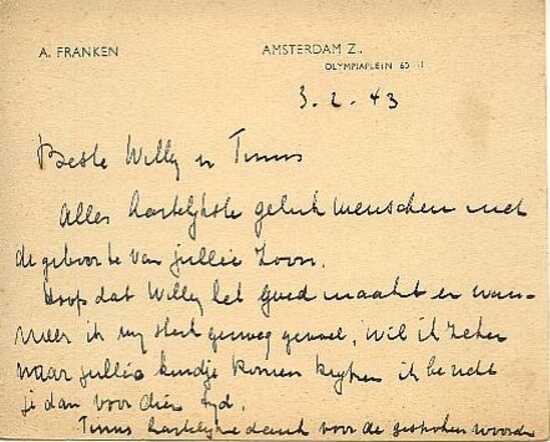 A. FRANKEN
AMSTERDAM Z..
OLYMPIAPLEIN 65 II
3. 2. 43
Beste Willy en Tinus
Alles hartelijkste geluk menschen met
de geboorte van jullie zoon.
Hoop dat Willy het goed maakt en wan-
neer ik my sterk genoeg gevoel, wil ik zeker
naar jullie kindje komen kyken ik bericht
je dan voor dien tyd.
Tinus hartelijke dank voor de gesproken woorden